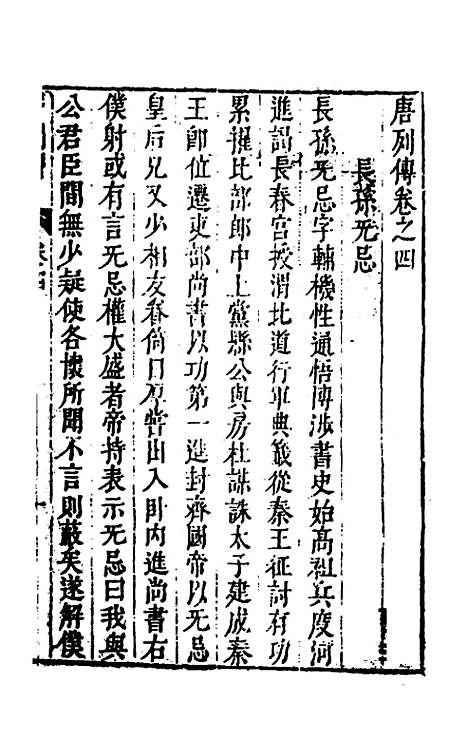 唐列傳卷之四
長孫无忌
長孫无忌字輔機性通悟博涉書史始高祖兵度河
進謁長春宮授渭北道行軍典籤從秦王征討有功
累擢比部郎中上黨縣公與房杜謀誅太子建成秦
王卽位遷吏部尚書以功第一進封齊國帝以无忌
皇后兄又少相友眷倚日厚常出入臥內進尚書右
僕射或有言无忌權大盛者帝持表示无忌曰我與
公君臣間無少疑使各懷所聞不言則蔽矣遂解僕